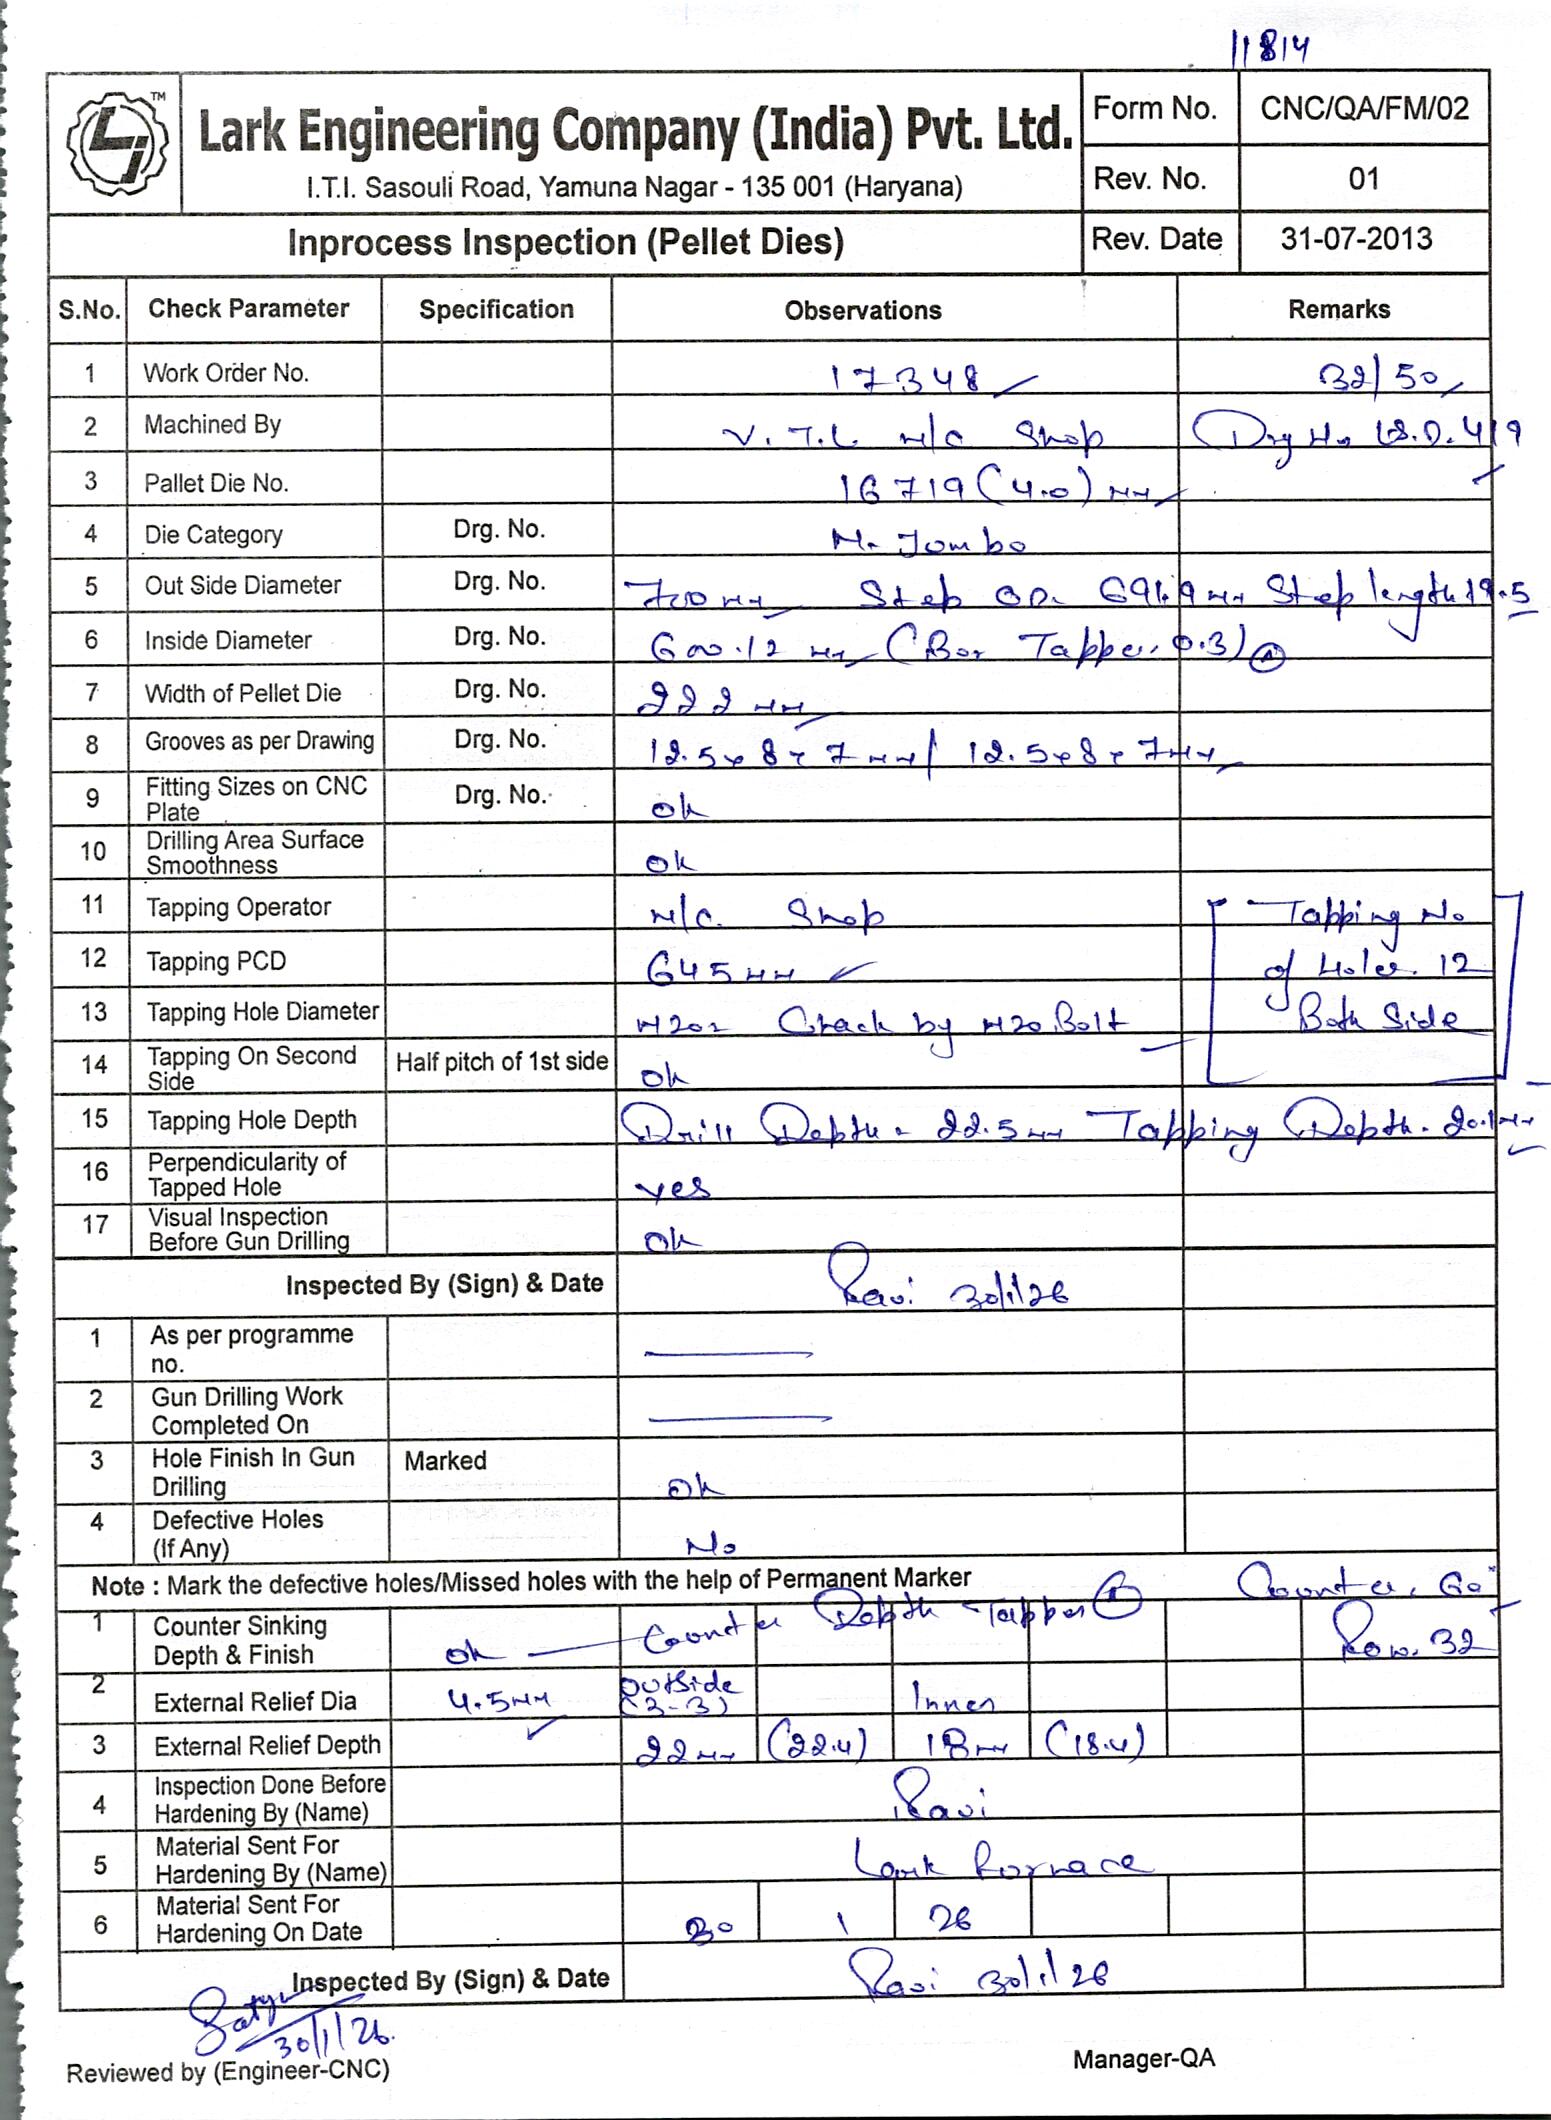 11814
TM
Lark Engineering Company (India) Pvt. Ltd.
I.T.I. Sasouli Road, Yamuna Nagar - 135 001 (Haryana)
Form No. CNC/QA/FM/02
Rev. No. 01
Inprocess Inspection (Pellet Dies) Rev. Date 31-07-2013
S.No. Check Parameter Specification Observations Remarks
1 Work Order No. 17348 32/50
2 Machined By V.T.L M/C Shop Drg No
3 Pallet Die No. 16719 (4.0) mm
4 Die Category Drg. No. M. Jombo
5 Out Side Diameter Drg. No. 700 mm Step OD. 691.9 mm Step length 19.5
6 Inside Diameter Drg. No. 600.12 mm (Bor Tapper. 0.3) A
7 Width of Pellet Die Drg. No. 222 mm
8 Grooves as per Drawing Drg. No. 12.5x8x7mm/ 12.5x8x7mm
9 Fitting Sizes on CNC Plate Drg. No. ok
10 Drilling Area Surface Smoothness ok
11 Tapping Operator M/C. Shop Tapping No
12 Tapping PCD 645mm of Holes. 12
13 Tapping Hole Diameter M20= Check by M20 Bolt Both Side
14 Tapping On Second Side Half pitch of 1st side ok
15 Tapping Hole Depth Drill Depth = 22.5mm Tapping Depth. 20.1mm
16 Perpendicularity of Tapped Hole yes
17 Visual Inspection Before Gun Drilling ok
Inspected By (Sign) & Date Ravi 30/1/26
1 As per programme no.
2 Gun Drilling Work Completed On
3 Hole Finish In Gun Drilling Marked ok
4 Defective Holes (If Any) No
Note : Mark the defective holes/Missed holes with the help of Permanent Marker Counter. 60°
1 Counter Sinking Depth & Finish ok Counter Depth Tapper Row. 32
2 External Relief Dia 4.5mm outside (3-3) Inner
3 External Relief Depth 22mm (22.4) 18mm (18.4)
4 Inspection Done Before Hardening By (Name) Ravi
5 Material Sent For Hardening By (Name) Lark Fornace
6 Material Sent For Hardening On Date 30 1 26
Inspected By (Sign) & Date Ravi 30/1/26
30/1/26
Reviewed by (Engineer-CNC) Manager-QA